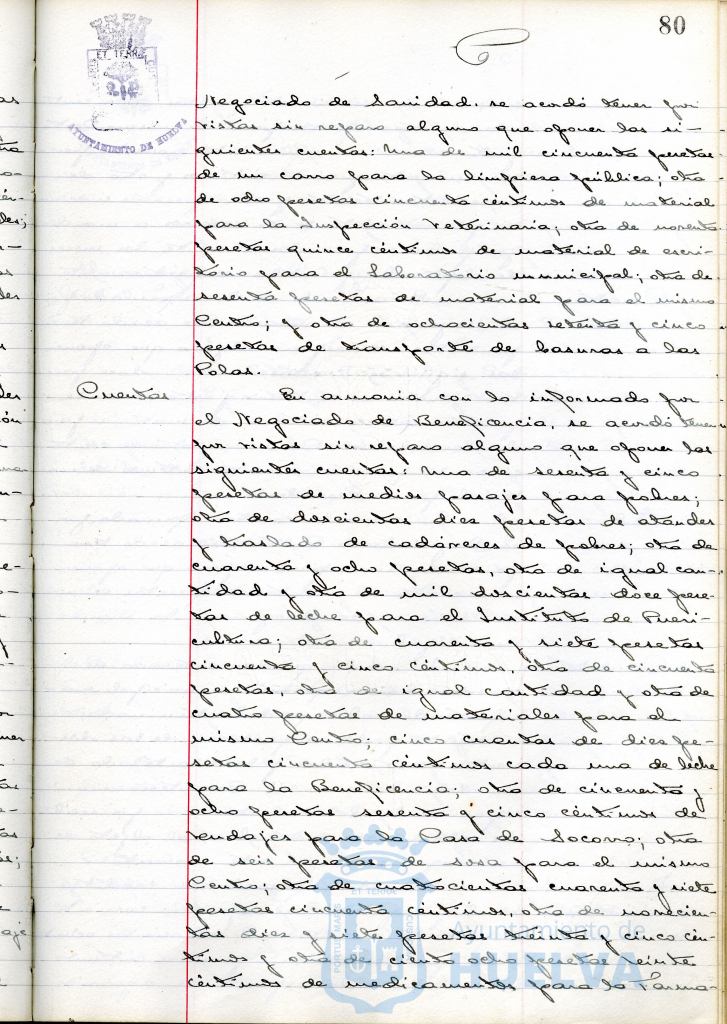 80
ET TERRÆ
AYUNTAMIENTO DE HUELVA
Negociado de Sanidad, se acordó tener por
vistas sin reparo alguno que oponer las si-
guientes cuentas: Una de mil cincuenta pesetas
de un carro para la limpiesa pública; otra
de ocho pesetas cincuenta céntimos de material
para la Inspección Veterinaria; otra de noventa
pesetas quince céntimos de material de escri-
torio para el Laboratorio municipal; otra de
sesenta pesetas de material para el mismo
Centro; y otra de ochocientas setenta y cinco
pesetas de transporte de basuras a las
Polas.
Cuentas
En armonia con lo informado por
el Negociado de Beneficencia, se acordó tener
por vistas sin reparo alguno que oponer las
siguientes cuentas: Una de sesenta y cinco
pesetas de medios pasajes para pobres;
otra de doscientas diez pesetas de ataudes
y traslado de cadáveres de pobres; otra de
cuarenta y ocho pesetas, otra de igual can-
tidad y otra de mil doscientas doce pese-
tas de leche para el Instituto de Pueri-
cultura; otra de cuarenta y siete pesetas
cincuenta y cinco céntimos, otra de cincuenta
pesetas, otra de igual cantidad y otra de
cuatro pesetas de materiales para el
mismo Centro; cinco cuentas de diez pe-
setas cincuenta céntimos cada una de leche
para la Beneficencia; otra de cincuenta y
ocho pesetas sesenta y cinco céntimos de
vendajes para la Casa de Socorro; otra
de seis pesetas de sosa para el mismo
Centro; otra de cuatrocientas cuarenta y siete
pesetas cincuenta céntimos, otra de novecien-
tas diez y siete pesetas treinta y cinco cén-
timos y otra de ciento ocho pesetas veinte
céntimos de medicamentos para la Farma-
Ayuntamiento de
HUELVA